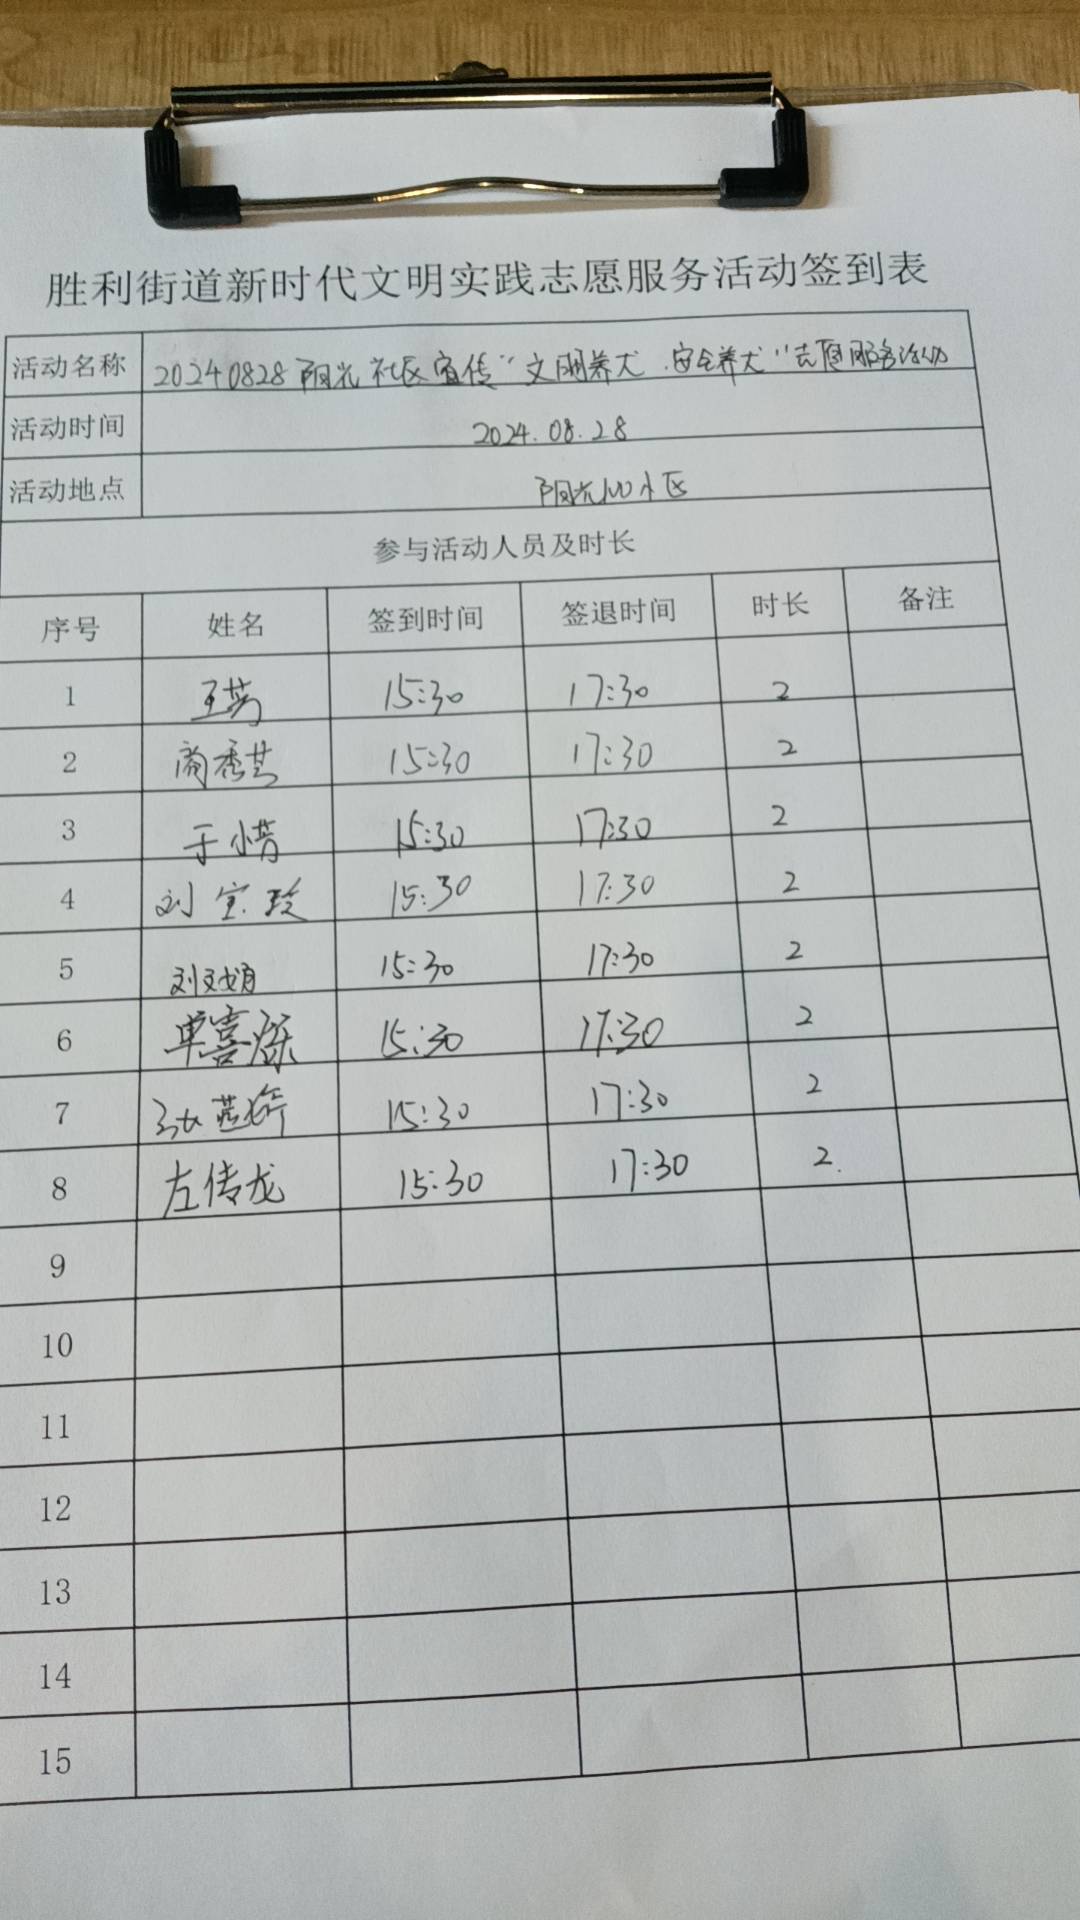 胜利街道新时代文明实践志愿服务活动签到表
活动名称 20240828阳光社区宣传"文明养犬.安全养犬"志愿服务活动
活动时间 2024.08.28
活动地点 阳光100小区
参与活动人员及时长
序号 姓名 签到时间 签退时间 时长 备注
1 王芳 15:30 17:30 2
2 秀芝 15:30 17:30 2
3 于小芳 15:30 17:30 2
4 刘宝玲 15:30 17:30 2
5 刘文娟 15:30 17:30 2
6 单喜烁 15:30 17:30 2
7 张燕婷 15:30 17:30 2
8 左传龙 15:30 17:30 2
9
10
11
12
13
14
15